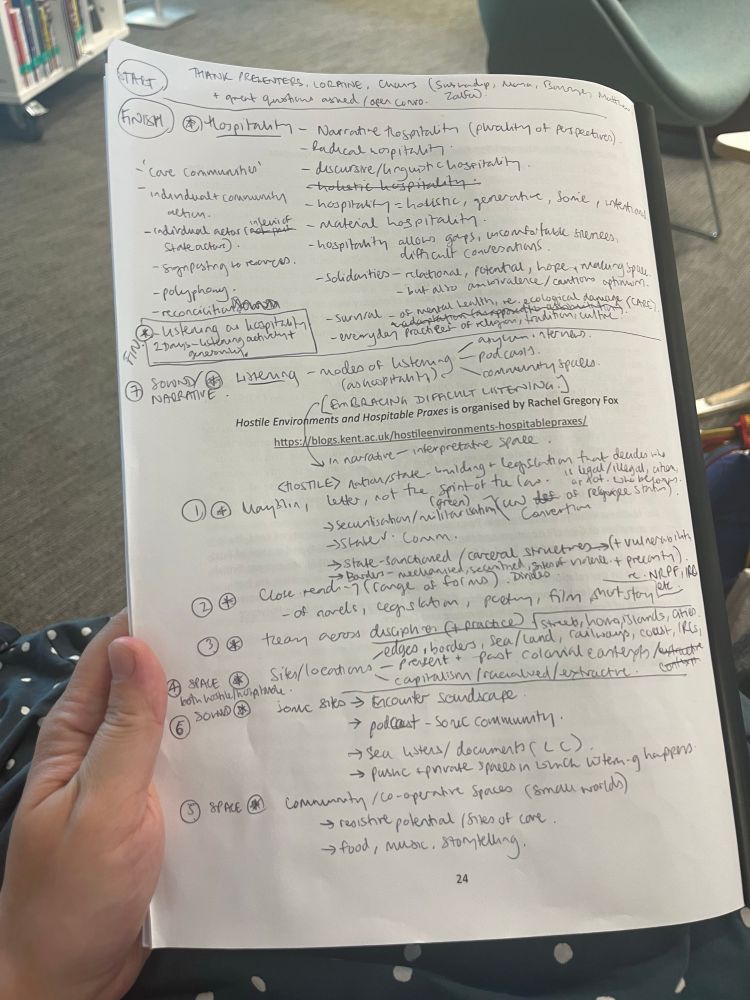 START
THANK PRESENTERS, LORAINE, Chairs
+ great questions asked / open convo.
FINISH
* Hospitality – Narrative Hospitality (plurality of perspectives).
- Radical hospitality.
'Care communities'
- discursive/linguistic hospitality.
holistic hospitality.
- individual + community action.
- hospitality = holistic, generative, sonic, intentional
- individual actor
state actors).
- material hospitality.
- hospitality allows gaps, uncomfortable silences,
difficult conversations.
- signposting to resources.
- Solidarities – relational, potential, hope, making space.
- but also ambivalence / cautious optimism.
- polyphony.
- reconciliation
- survival – of mental health, re. ecological damage (CARE).
- everyday practices of religion, tradition, culture.
FIN. * - Listening as hospitality
2 Days – listening actively +
generously.
7 SOUND/ * Listening – modes of listening
NARRATIVE.
(as hospitality)
asylum interviews.
podcasts
community spaces.
[EMBRACING DIFFICULT LISTENING.]
Hostile Environments and Hospitable Praxes is organised by Rachel Gregory Fox
https://blogs.kent.ac.uk/hostileenvironments-hospitablepraxes/
in narrative – interpretative space.
<HOSTILE> nation/state-building + legislation that decides who
is legal/illegal, citizen,
or not. Who belongs.
1 * Mayblin, letter, not the spirit of the law.
(UN of refugee status).
Convention
→ securitisation/militarisation
→ State v. Comm.
→ State-sanctioned / carceral structures → (+ vulnerability
→ Borders – mechanised, securitised, sites of violence. + precarity).
Divides
re. NRPF, IRC
etc.
2 * Close read-g (range of forms).
- of novels, legislation, poetry, film, short story
3 * Read across disciplines (+ practice)
streets, homes, islands, cities
edges, borders, sea/land, railways, coast, IRCs,
4 SPACE * Sites/locations – present + past colonial contexts/
both hostile/hospitable.
capitalism/racialised/extractive.
6 SOUND * Sonic sites → Encounter soundscape.
→ podcast – sonic community.
→ Sea listens/documents (LC).
→ public + private spaces in which listen-g happens.
5 SPACE * Community/co-operative spaces (small worlds)
→ resistive potential / sites of care.
→ food, music, storytelling.
24